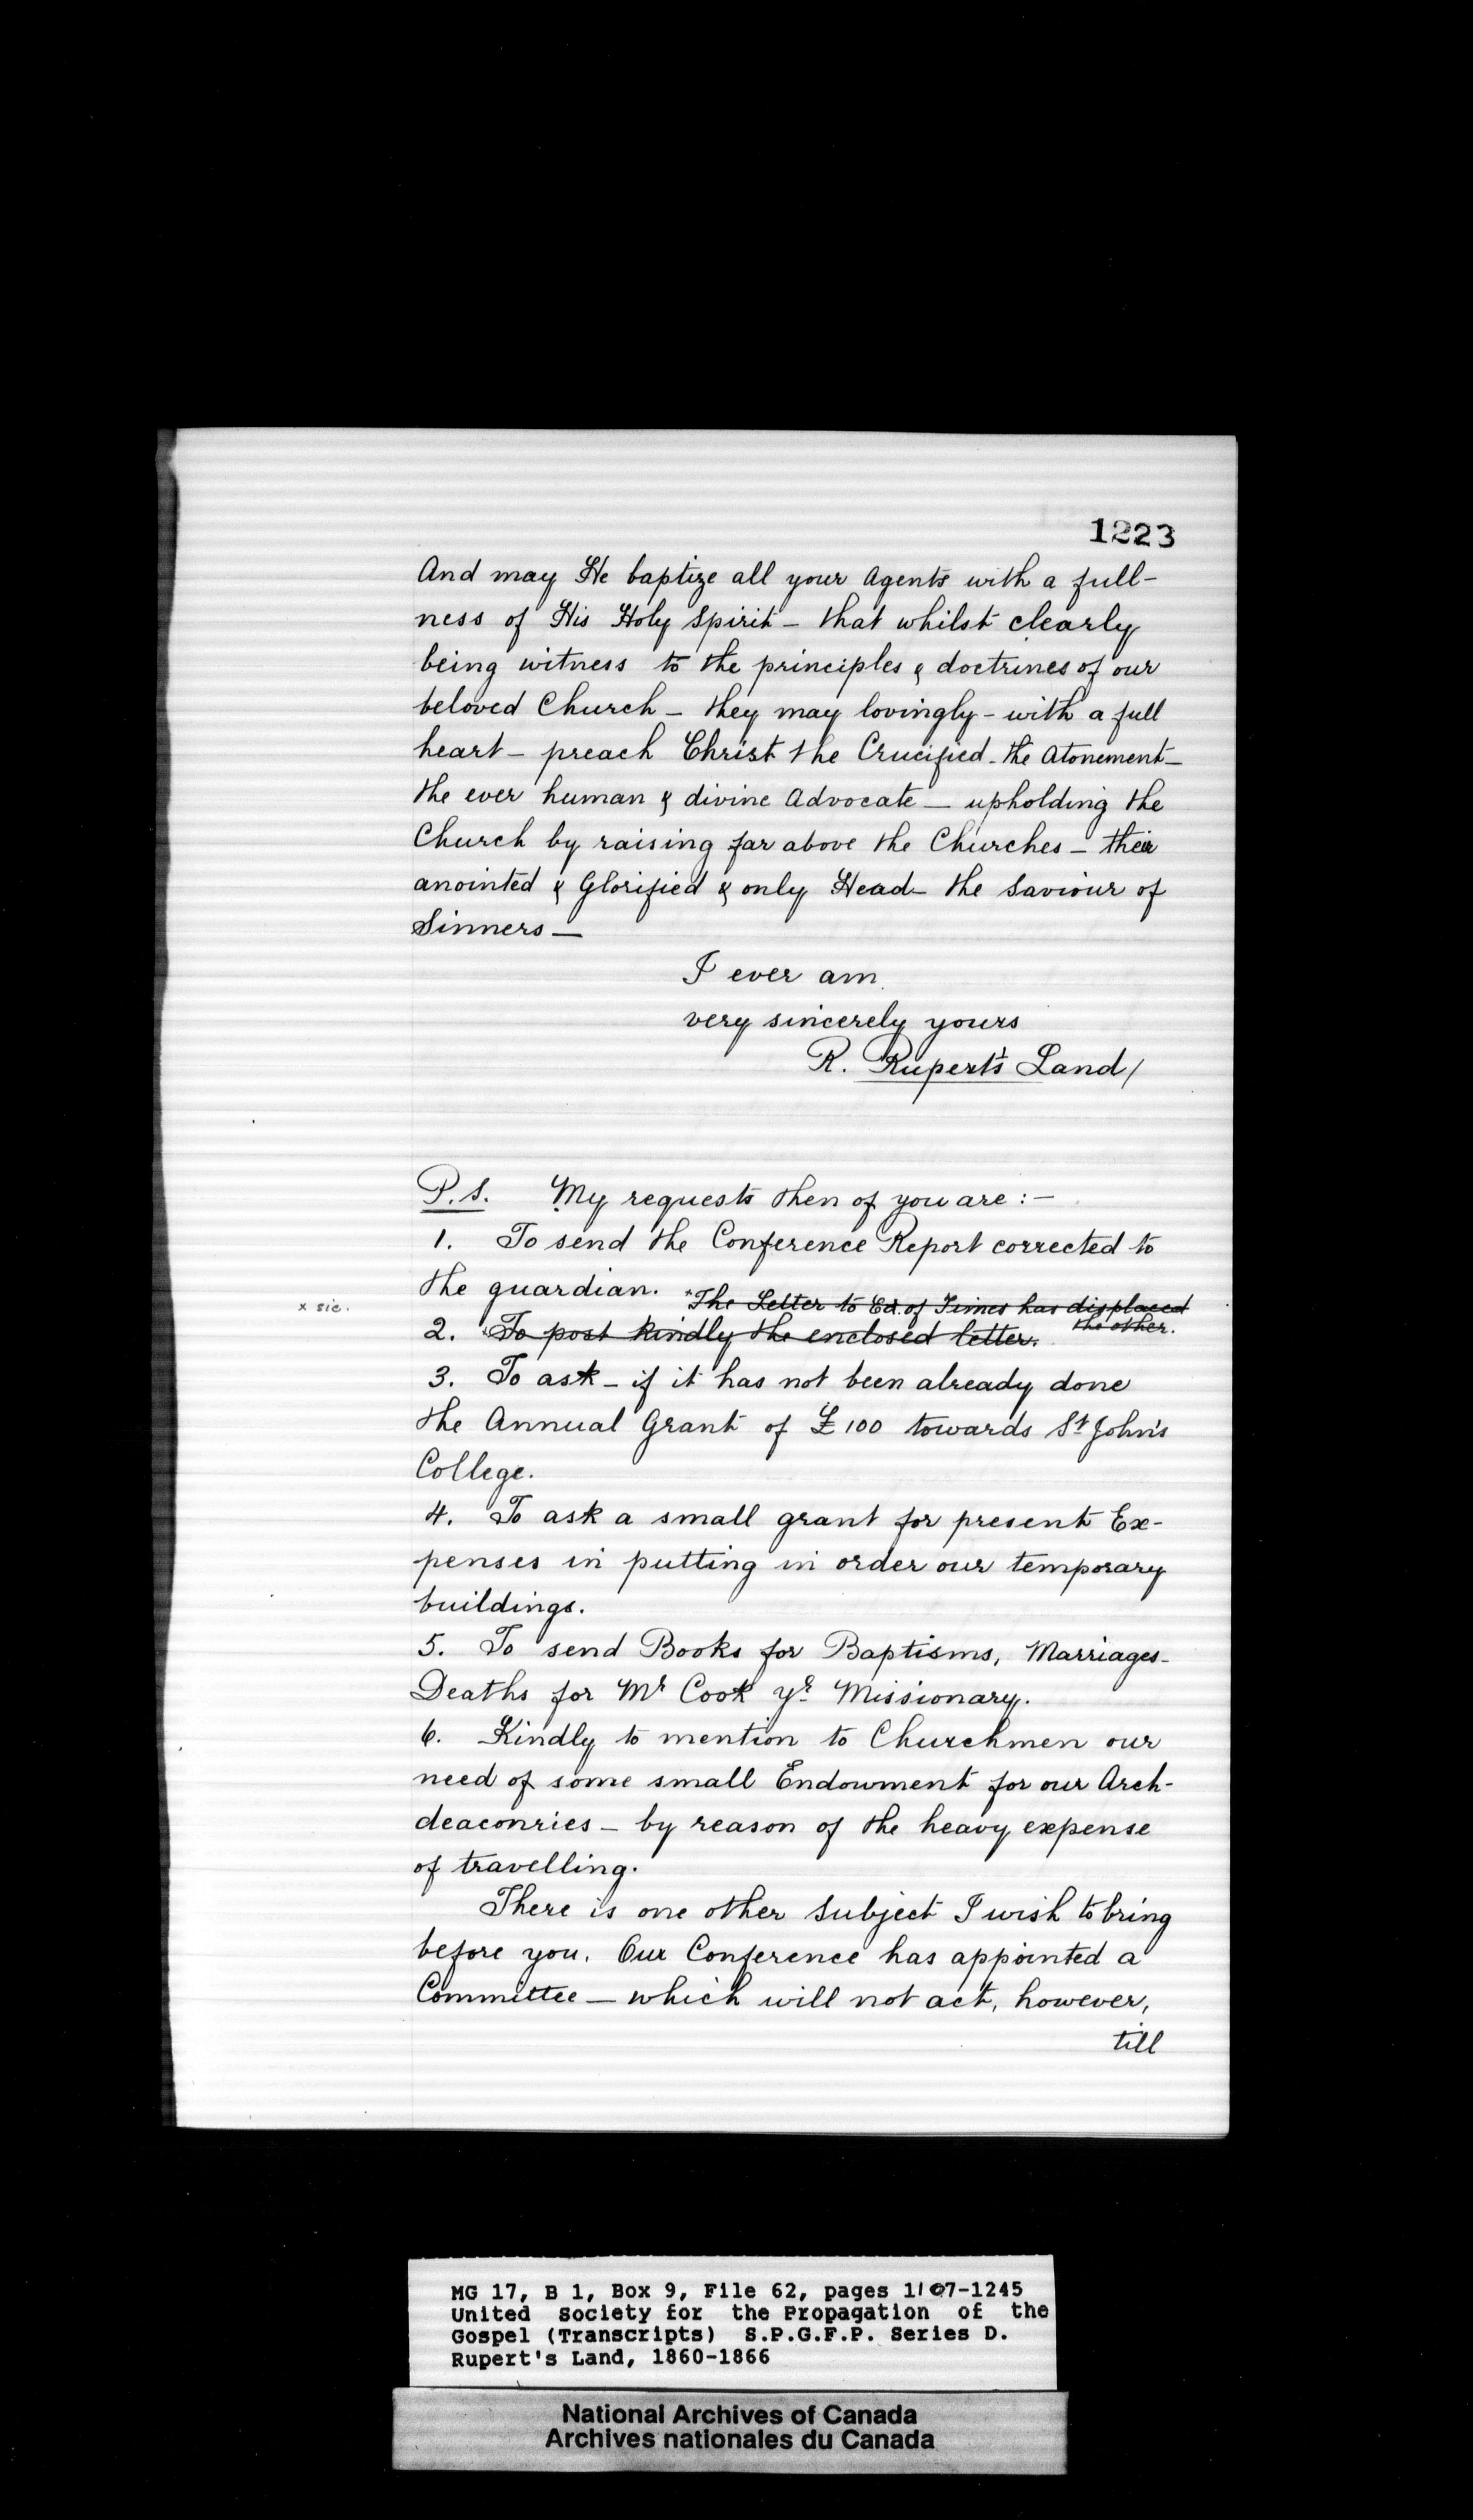 1223
And may He baptize all your Agents with a full-
ness of His Holy Spirit – that whilst clearly
being witness to the principles & doctrines of our
beloved Church – they may lovingly – with a full
heart – preach Christ the Crucified – the Atonement –
the ever human & divine Advocate – upholding the
Church by raising far above the Churches – their
anointed & Glorified & only Head – the Saviour of
Sinners —
I ever am
very sincerely yours
R. Rupert's Land/
P.S. My requests then of you are :–
1. To send the Conference Report corrected to
the guardian. x The Letter to Ed. of Times has displaced
the other.
x sic.
2. To post kindly the enclosed letter.
3. To ask – if it has not been already done
the Annual Grant of £100 towards St John's
College.
4. To ask a small grant for present Ex-
penses in putting in order our temporary
buildings.
5. To send Books for Baptisms, Marriages –
Deaths for Mr Cook yr. Missionary.
6. Kindly to mention to Churchmen our
need of some small Endowment for our Arch-
deaconries – by reason of the heavy expense
of travelling.
There is one other Subject I wish to bring
before you. Our Conference has appointed a
Committee – which will not act, however,
till
MG 17, B 1, Box 9, File 62, pages 1107-1245
United Society for the Propagation of the
Gospel (Transcripts) S.P.G.F.P. Series D.
Rupert's Land, 1860-1866
National Archives of Canada
Archives nationales du Canada